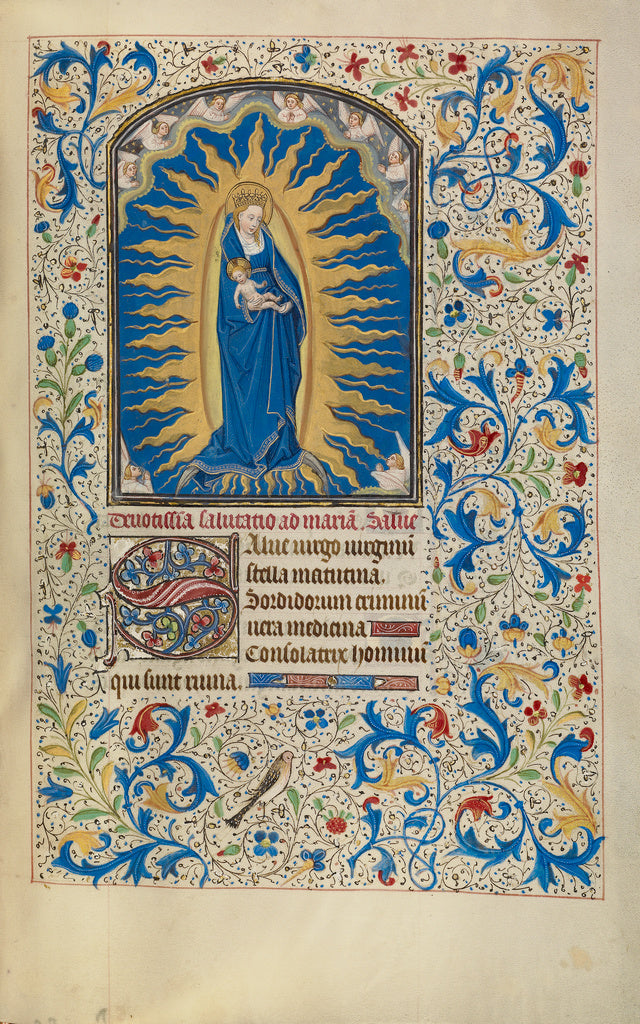 Deuotissiã salutatio ad mariã. Salue
Salue uirgo uirginũ
stella matutina.
Sordidorum criminũ
uera medicina
Consolatrix hominũ
qui sunt ruina.